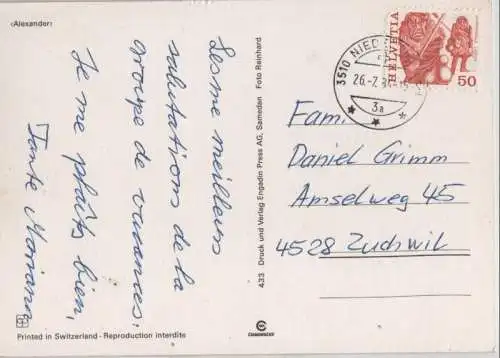 ‹Alexander›
Les me meilleurs
salutations de la
groupe de vacances.
Je me plaîts bien,
Tante Moriann
433 Druck und Verlag Engadin Press AG, Samedan Foto Reinhard
Printed in Switzerland - Reproduction interdite
3510 NIED
26.-7.
3a
HELVETIA
50
Fami
Daniel Grimm
Amselweg 45
4528 Zuchwil